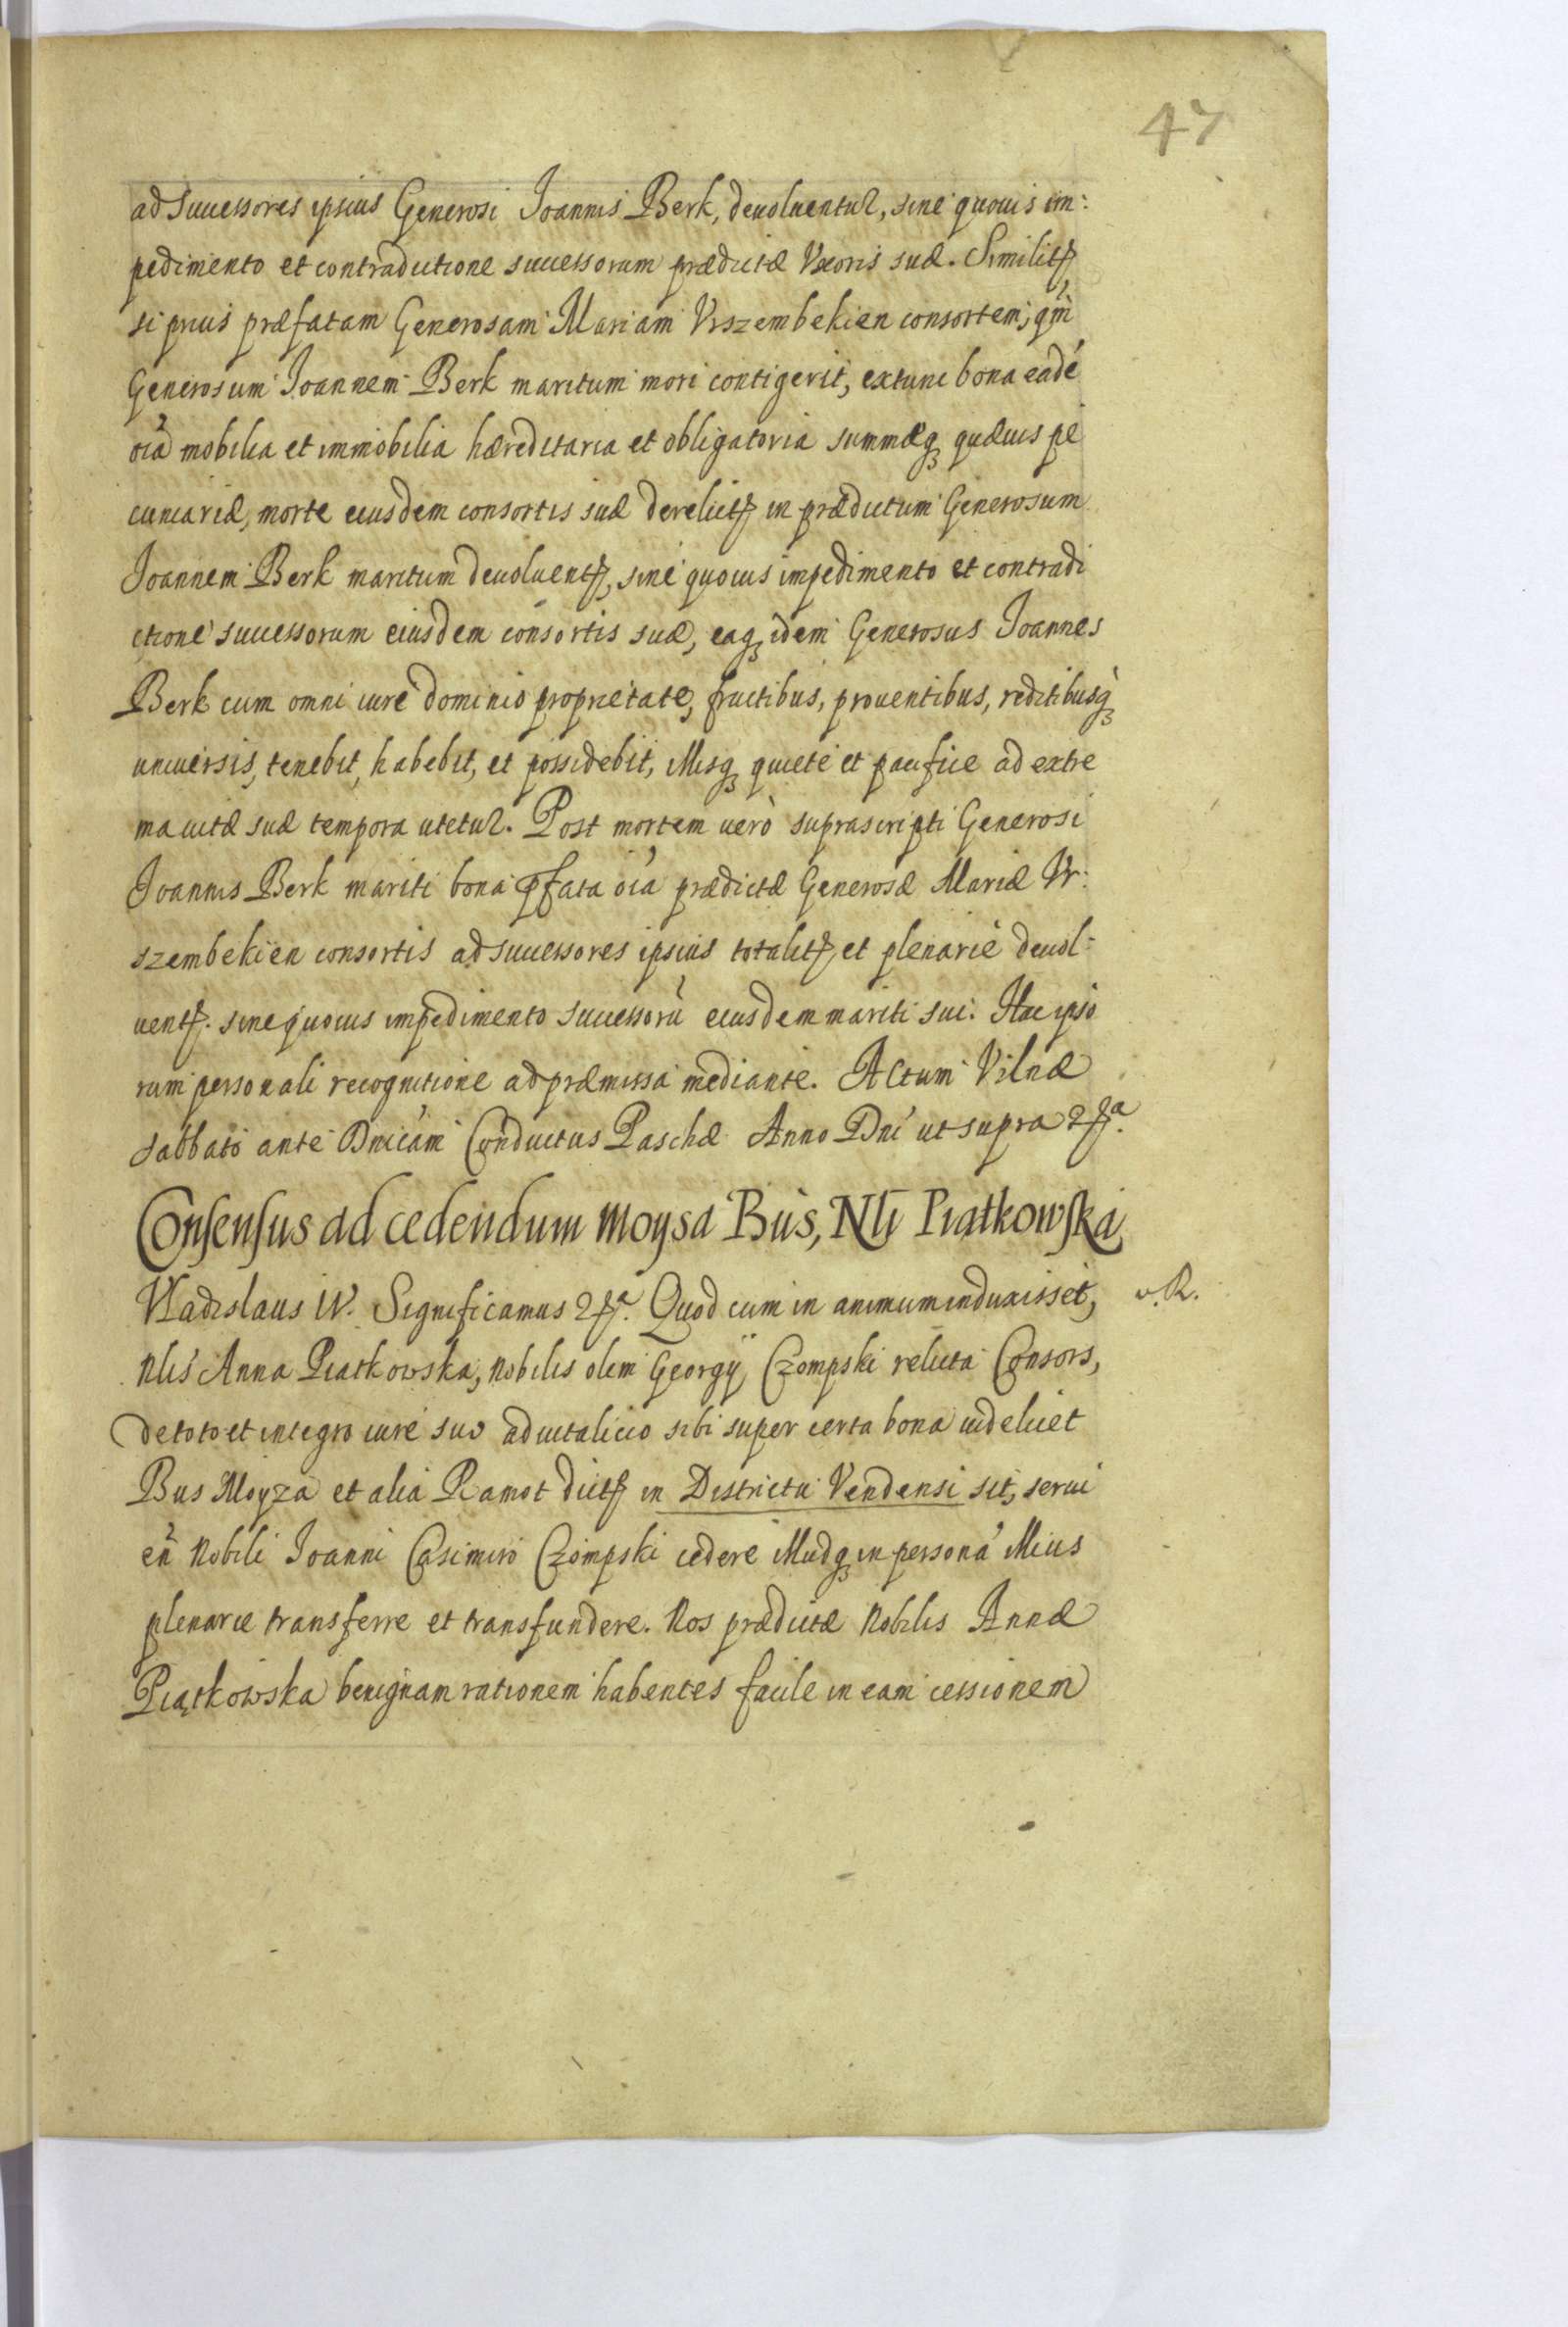 47
ad Successores ipsius Generosi Joannis Berk, deuoluentur, sine quouis im:
pedimento et contradictione successorum prædictæ Vxoris suæ. Similitʒ
si prius præfatam Generosam Mariam Vrszembekien consortem, qm̀
Generosum Joannem Berk maritum mori contigerit, extunc bona eadé
oīa mobilia et immobilia hæreditaria et obligatoria summæqʒ quæuis pe
cuniariæ, morte eiusdem consortis suæ derelictʒ in prædictum Generosum
Joannem Berk maritum deuoluentʒ, sine quouis impedimento et contradi
ctione successorum eiusdem consortis suæ, eaqʒ idem Generosus Joannes
Berk cum omni iure dominio proprietate, fructibus, prouentibus, reditibusqʒ
uniuersis, tenebit, habebit, et possidebit, illisqʒ quiete et pacifice ad extre
ma uitæ suæ tempora utetur. Post mortem uerò suprascripti Generosi
Joannis Berk mariti bona pfata oīa prædictæ Generosæ Mariæ Vr:
szembekien consortis ad successores ipsius totalitʒ et plenariè deuol-
uentʒ. sine quouis impedimento successorū eiusdem mariti sui. Hac ipso
rum personali recognitione ad præmissa mediante. Actum Vilnæ
Sabbato ante Dnicam Conductus Paschæ Anno Dni ut supra 2ʒa.
Consensus ad cedendum Moysa Bus, Nli Piatkowska
Vladislaus IV. Significamus 2ʒa. Quod cum in animum induxisset, v. R.
Nlis Anna Piatkowska, Nobilis olim Georgij Czompski relicta Consors,
de toto et integro iure suo aduitalicio sibi super certa bona uidelicet
Bus Moyza et alia Ramot dictʒ in Districtu Vendensi sit, serui
eñ Nobili Joanni Casimiro Czompski cedere illudqʒ in personá illius
plenarie transferre et transfundere. Nos prædictæ Nobilis Annæ
Piątkowska benignam rationem habentes facile in eam cessionem